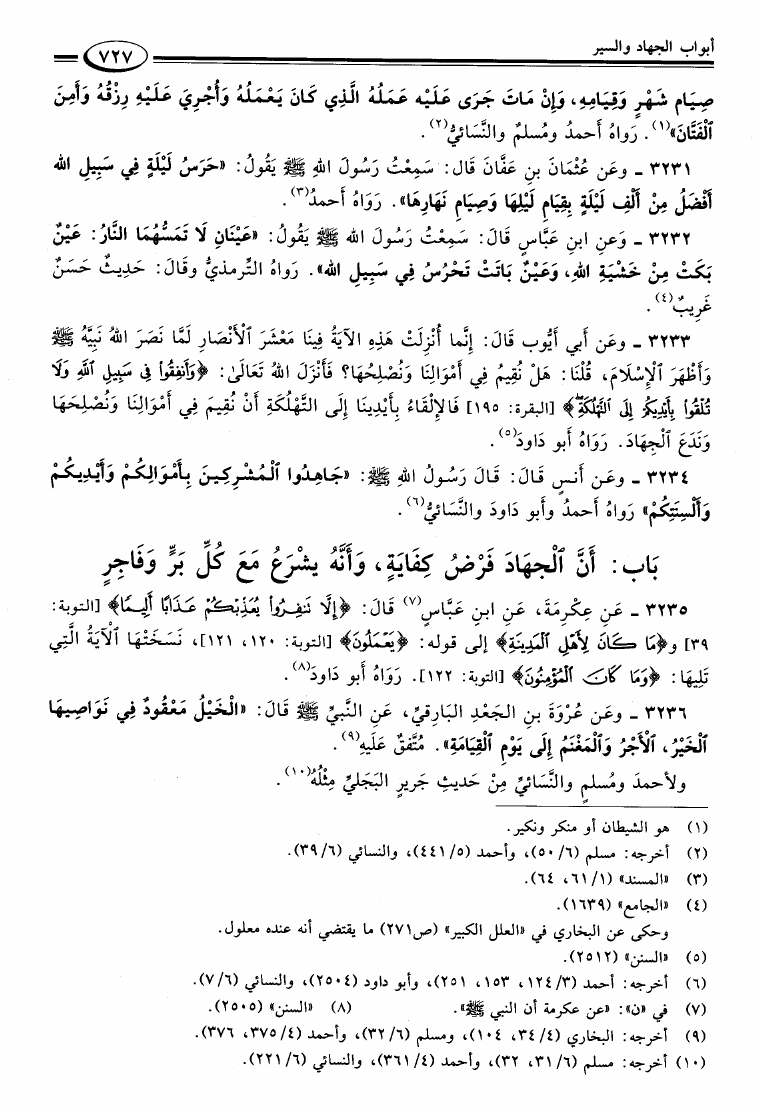 أبواب الجهاد والسير
٧٢٧
صِيَامِ شَهْرٍ وَقِيَامِهِ، وَإِنْ مَاتَ جَرَى عَلَيْهِ عَمَلُهُ الَّذِي كَانَ يَعْمَلُهُ وَأُجْرِيَ عَلَيْهِ رِزْقُهُ وَأَمِنَ
الْفَتَّانَ»(١). رَوَاهُ أَحمدُ ومُسلمٌ والنَّسائيُّ(٢).
٣٢٣١ ـ وعَن عُثْمَانَ بنِ عَفَّانَ قَالَ: سَمِعْتُ رَسُولَ اللهِ ﷺ يَقُولُ: «حَرَسُ لَيْلَةٍ فِي سَبِيلِ الله
أَفْضَلُ مِنْ أَلْفِ لَيْلَةٍ بِقِيَامِ لَيْلِهَا وَصِيَامِ نَهَارِهَا». رَوَاهُ أَحمدُ(٣).
٣٢٣٢ ـ وَعنِ ابنِ عَبَّاسٍ قَالَ: سَمِعْتُ رَسُولَ الله ﷺ يَقُولُ: «عَيْنَانِ لَا تَمَسُّهُمَا النَّارُ: عَيْنٌ
بَكَتْ مِنْ خَشْيَةِ اللهِ، وَعَيْنٌ بَاتَتْ تَحْرُسُ فِي سَبِيلِ الله». رَوَاهُ التِّرمذيُّ وقَالَ: حَدِيثٌ حَسَنٌ
غَرِيبٌ(٤).
٣٢٣٣ ـ وعَن أَبي أَيُّوب قَالَ: إِنَّما أُنْزِلَتْ هَذِهِ الآيَةُ فِينَا مَعْشَرَ الْأَنْصَارِ لَمَّا نَصَرَ اللهُ نَبِيَّهُ ﷺ
وَأَظْهَرَ الْإِسْلَامَ، قُلْنَا: هَلْ نُقِيمُ فِي أَمْوَالِنَا وَنُصْلِحُهَا؟ فَأَنْزَلَ اللهُ تَعَالَىٰ: ﴿وَأَنفِقُوا۟ فِى سَبِيلِ ٱللَّهِ وَلَا
تُلْقُوا۟ بِأَيْدِيكُمْ إِلَى ٱلتَّهْلُكَةِ﴾ [البقرة: ١٩٥] فَالإِلْقَاءُ بِأَيْدِينَا إِلَى التَّهْلُكَةِ أَنْ نُقِيمَ فِي أَمْوَالِنَا وَنُصْلِحَهَا
وَنَدَعَ الْجِهَادَ. رَوَاهُ أَبو دَاودَ(٥).
٣٢٣٤ ـ وعَن أَنسٍ قَالَ: قَالَ رَسُولُ اللهِ ﷺ: «جَاهِدُوا الْمُشْرِكِينَ بِأَمْوَالِكُمْ وَأَيْدِيكُمْ
وَأَلْسِنَتِكُمْ» رَوَاهُ أَحمدُ وأَبو دَاودَ والنَّسائيُّ(٦).
بَاب: أَنَّ الْجِهَادَ فَرْضُ كِفَايَةٍ، وَأَنَّهُ يشْرَعُ مَعَ كُلِّ بَرٍّ وَفَاجِرٍ
٣٢٣٥ ـ عَن عِكْرِمَةَ، عَنِ ابنِ عَبَّاسٍ(٧) قَالَ: ﴿إِلَّا تَنفِرُوا۟ يُعَذِّبْكُمْ عَذَابًا أَلِيمًا﴾ [التوبة:
٣٩] و﴿مَا كَانَ لِأَهْلِ ٱلْمَدِينَةِ﴾ إلى قوله: ﴿يَعْمَلُونَ﴾ [التوبة: ١٢٠، ١٢١]، نَسَخَتْهَا الْآيَةُ الَّتِي
تَلِيهَا: ﴿وَمَا كَانَ ٱلْمُؤْمِنُونَ﴾ [التوبة: ١٢٢]. رَوَاهُ أَبو دَاودَ(٨).
٣٢٣٦ ـ وعَن عُرْوَةَ بنِ الجَعْدِ البَارقِيِّ، عَنِ النَّبيِّ ﷺ قَالَ: «الْخَيْلُ مَعْقُودٌ فِي نَوَاصِيهَا
الْخَيْرُ، الْأَجْرُ وَالْمَغْنَمُ إِلَى يَوْمِ الْقِيَامَةِ». مُتَّفقٌ عَلَيهِ(٩).
ولأحمدَ ومُسلمٍ والنَّسائيِّ مِنْ حَديثِ جَريرٍ البَجَليِّ مِثْلُهُ(١٠).
(١) هو الشيطان أو منكر ونكير.
(٢) أخرجه: مسلم (٦/ ٥٠)، وأحمد (٥/ ٤٤١)، والنسائي (٦/ ٣٩).
(٣) «المسند» (١/ ٦١، ٦٤).
(٤) «الجامع» (١٦٣٩).
وحكى عن البخاري في «العلل الكبير» (ص٢٧١) ما يقتضي أنه عنده معلول.
(٥) «السنن» (٢٥١٢).
(٦) أخرجه: أحمد (٣/ ١٢٤، ١٥٣، ٢٥١)، وأبو داود (٢٥٠٤)، والنسائي (٦/ ٧).
(٧) في «ن»: «عن عكرمة أن النبي ﷺ». (٨) «السنن» (٢٥٠٥).
(٩) أخرجه: البخاري (٤/ ٣٤، ١٠٤)، ومسلم (٦/ ٣٢)، وأحمد (٤/ ٣٧٥، ٣٧٦).
(١٠) أخرجه: مسلم (٦/ ٣١، ٣٢)، وأحمد (٤/ ٣٦١)، والنسائي (٦/ ٢٢١).